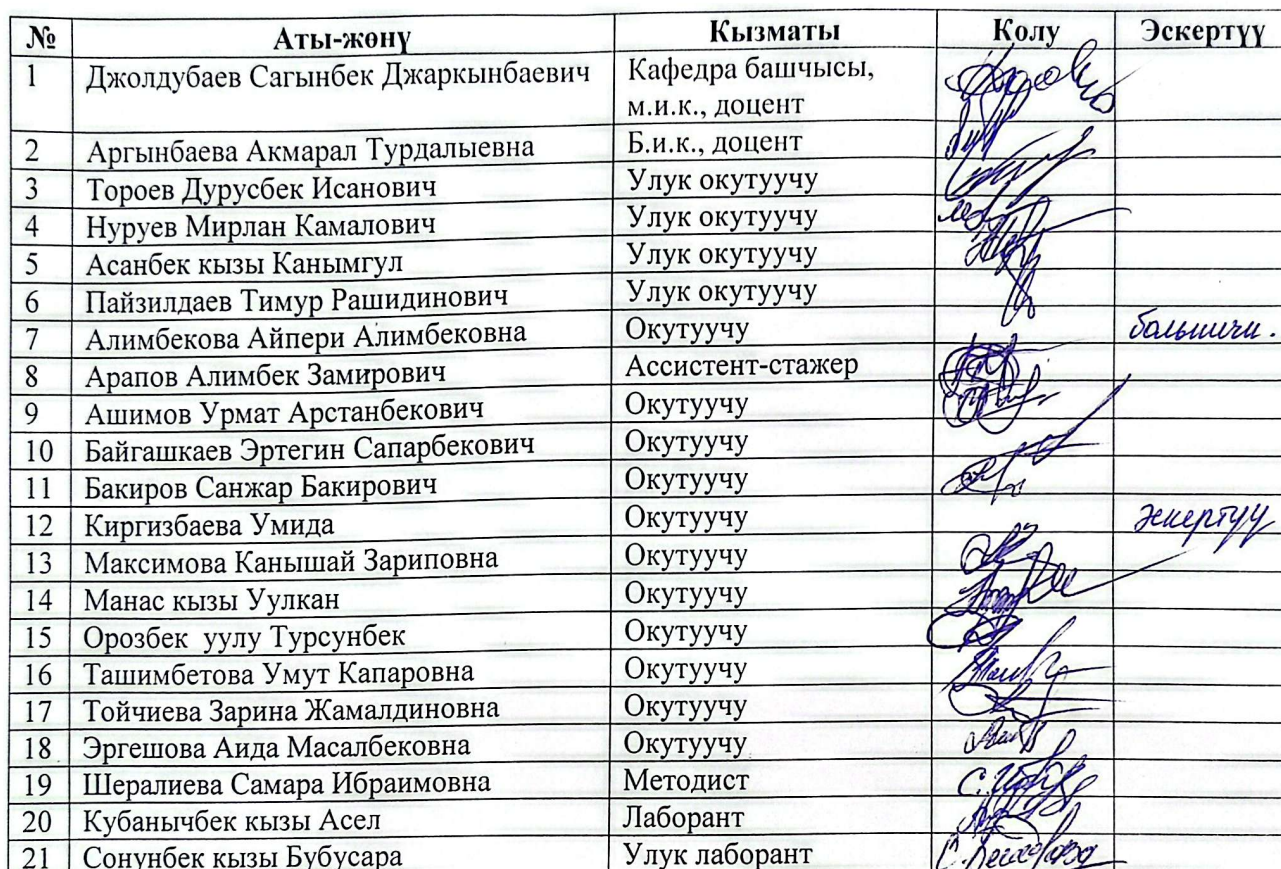 № Аты-жөнү Кызматы Колу Эскертүү
1 Джолдубаев Сагынбек Джаркынбаевич Кафедра башчысы,
м.и.к., доцент
2 Аргынбаева Акмарал Турдалыевна Б.и.к., доцент
3 Тороев Дурусбек Исанович Улук окутуучу
4 Нуруев Мирлан Камалович Улук окутуучу
5 Асанбек кызы Канымгул Улук окутуучу
6 Пайзилдаев Тимур Рашидинович Улук окутуучу
7 Алимбекова Айпери Алимбековна Окутуучу
8 Арапов Алимбек Замирович Ассистент-стажер
9 Ашимов Урмат Арстанбекович Окутуучу
10 Байгашкаев Эртегин Сапарбекович Окутуучу
11 Бакиров Санжар Бакирович Окутуучу
12 Киргизбаева Умида Окутуучу Эскертүү
13 Максимова Канышай Зариповна Окутуучу
14 Манас кызы Уулкан Окутуучу
15 Орозбек уулу Турсунбек Окутуучу
16 Ташимбетова Умут Капаровна Окутуучу
17 Тойчиева Зарина Жамалдиновна Окутуучу
18 Эргешова Аида Масалбековна Окутуучу
19 Шералиева Самара Ибраимовна Методист
20 Кубанычбек кызы Асел Лаборант
21 Сонунбек кызы Бубусара Улук лаборант